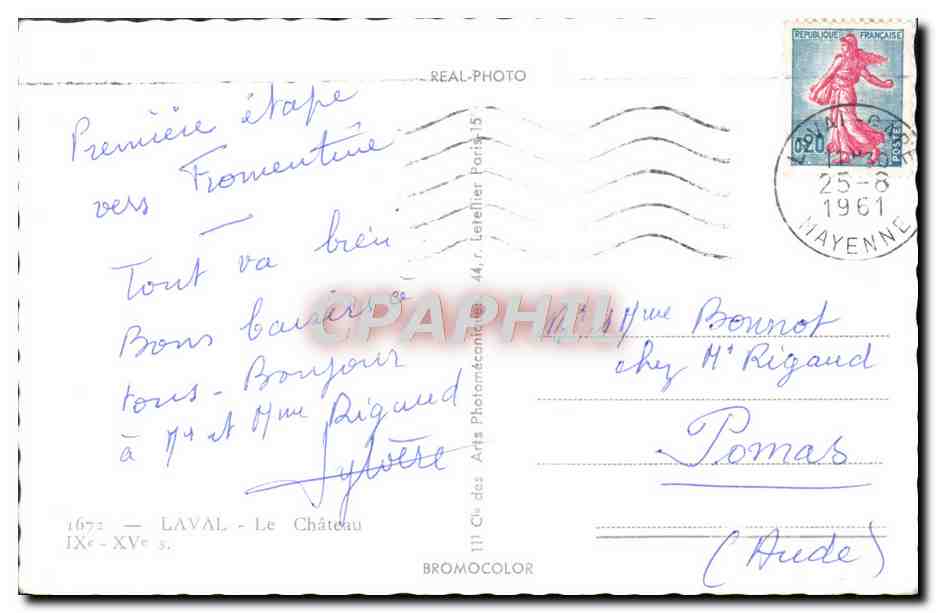 REAL-PHOTO
REPUBLIQUE FRANÇAISE
0,20
POSTES
LAVAL-GARE
25-8
1961
MAYENNE
Première étape
vers Fromentine
Tout va bien
Bons baisers à
tous - Bonjour
à Mr et Mme Rigaud
Sylvère
CPAPHIL
Mr & Mme Bonnot
chez Mr Rigaud
Pomas
(Aude)
111 Cie des Arts Photomécaniques 44, r. Letellier Paris-15
1672 — LAVAL - Le Château
IXe - XVe s.
BROMOCOLOR